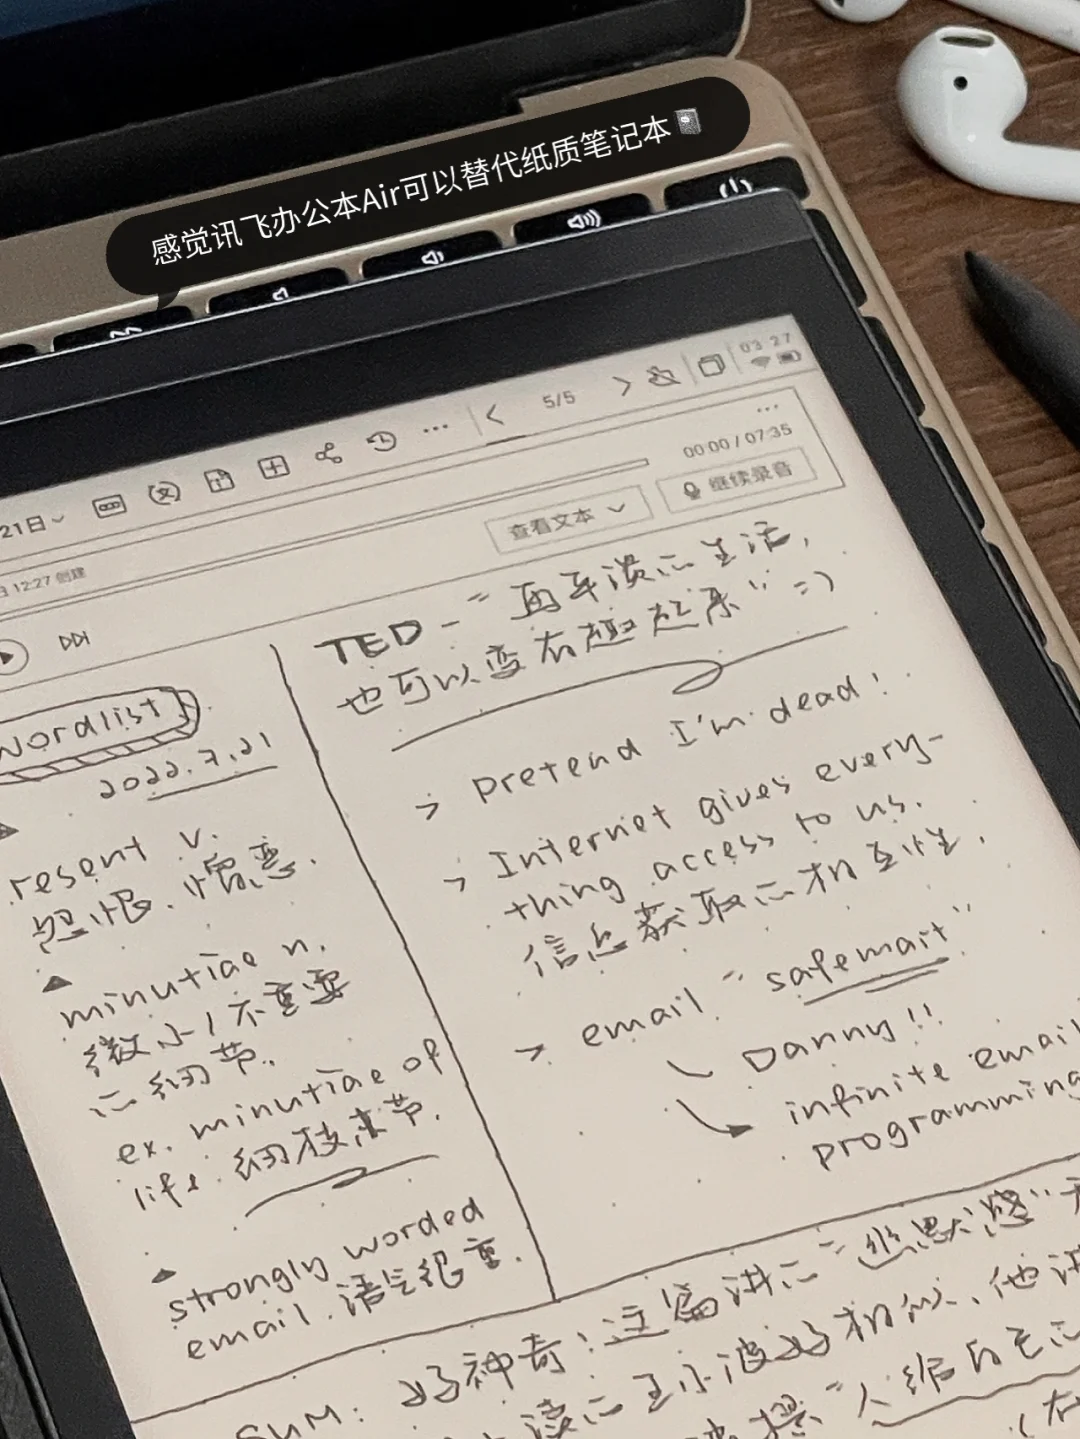 感觉讯飞办公本Air可以替代纸质笔记本
03 27
5/5
00:00 / 07:35
21日
继续录音
查看文本
12:27 创建
DDI
wordlist
2022.7.21
resent v.
怨恨.憎恶.
minutiae n.
微小/不重要
の细节.
ex. minutiae of
life. 细枝末节.
strongly worded
email. 语气很重.
TED - “再平淡の生活,
也可以变有趣起来” =)
> pretend I'm dead!
> Internet gives every-
thing access to us.
信息获取の相互性.
> email “safemait”
Danny!!
infinite email
programming
SUM: 好神奇!这篇讲の
王小波好相似、他